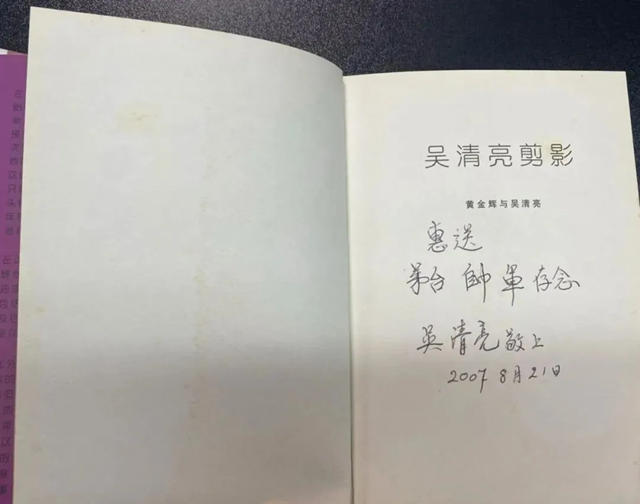 吴清亮剪影
黄金辉与吴清亮
惠送
茅台 帥軍存念
吴清亮敬上
2007 8月21日